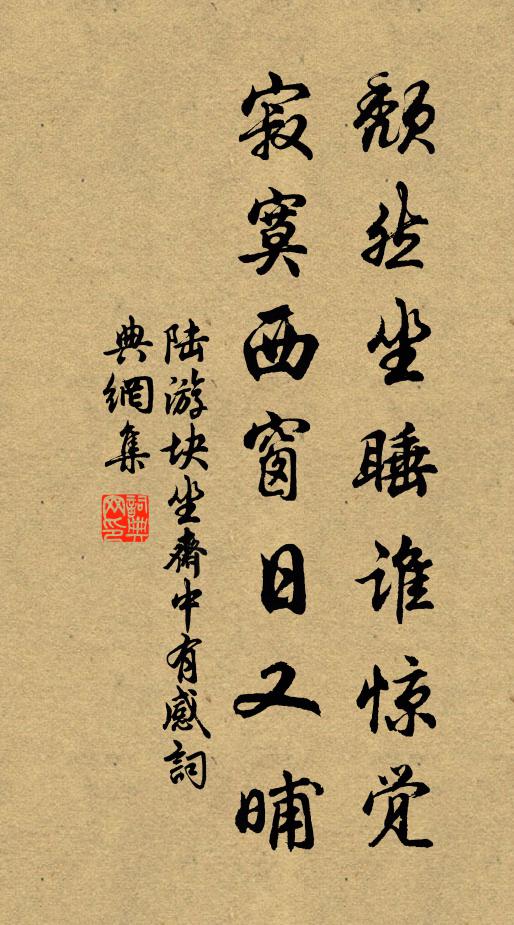 颓然坐睡谁惊觉
寂寞西窗日又晡
陆游块坐斋中有感詞
典網集
詞典
网印